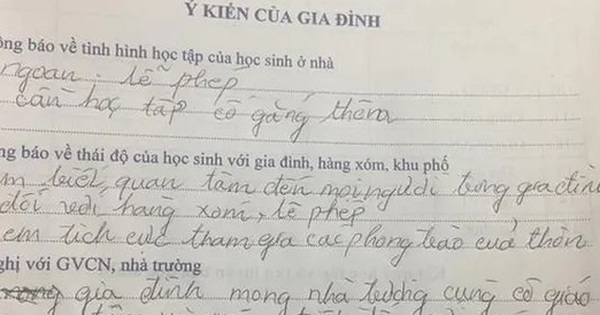 Ý KIẾN CỦA GIA ĐÌNH
ông báo về tình hình học tập của học sinh ở nhà
ngoan. lễ phép
cần học tập cố gắng thêm
ng báo về thái độ của học sinh với gia đình, hàng xóm, khu phố
m biết quan tâm đến mọi người trong gia đìn
đối với hàng xóm, lễ phép
em tích cực tham gia các phong trào của thôn
ghị với GVCN, nhà trường
gia đình mong nhà trường cùng cô giáo